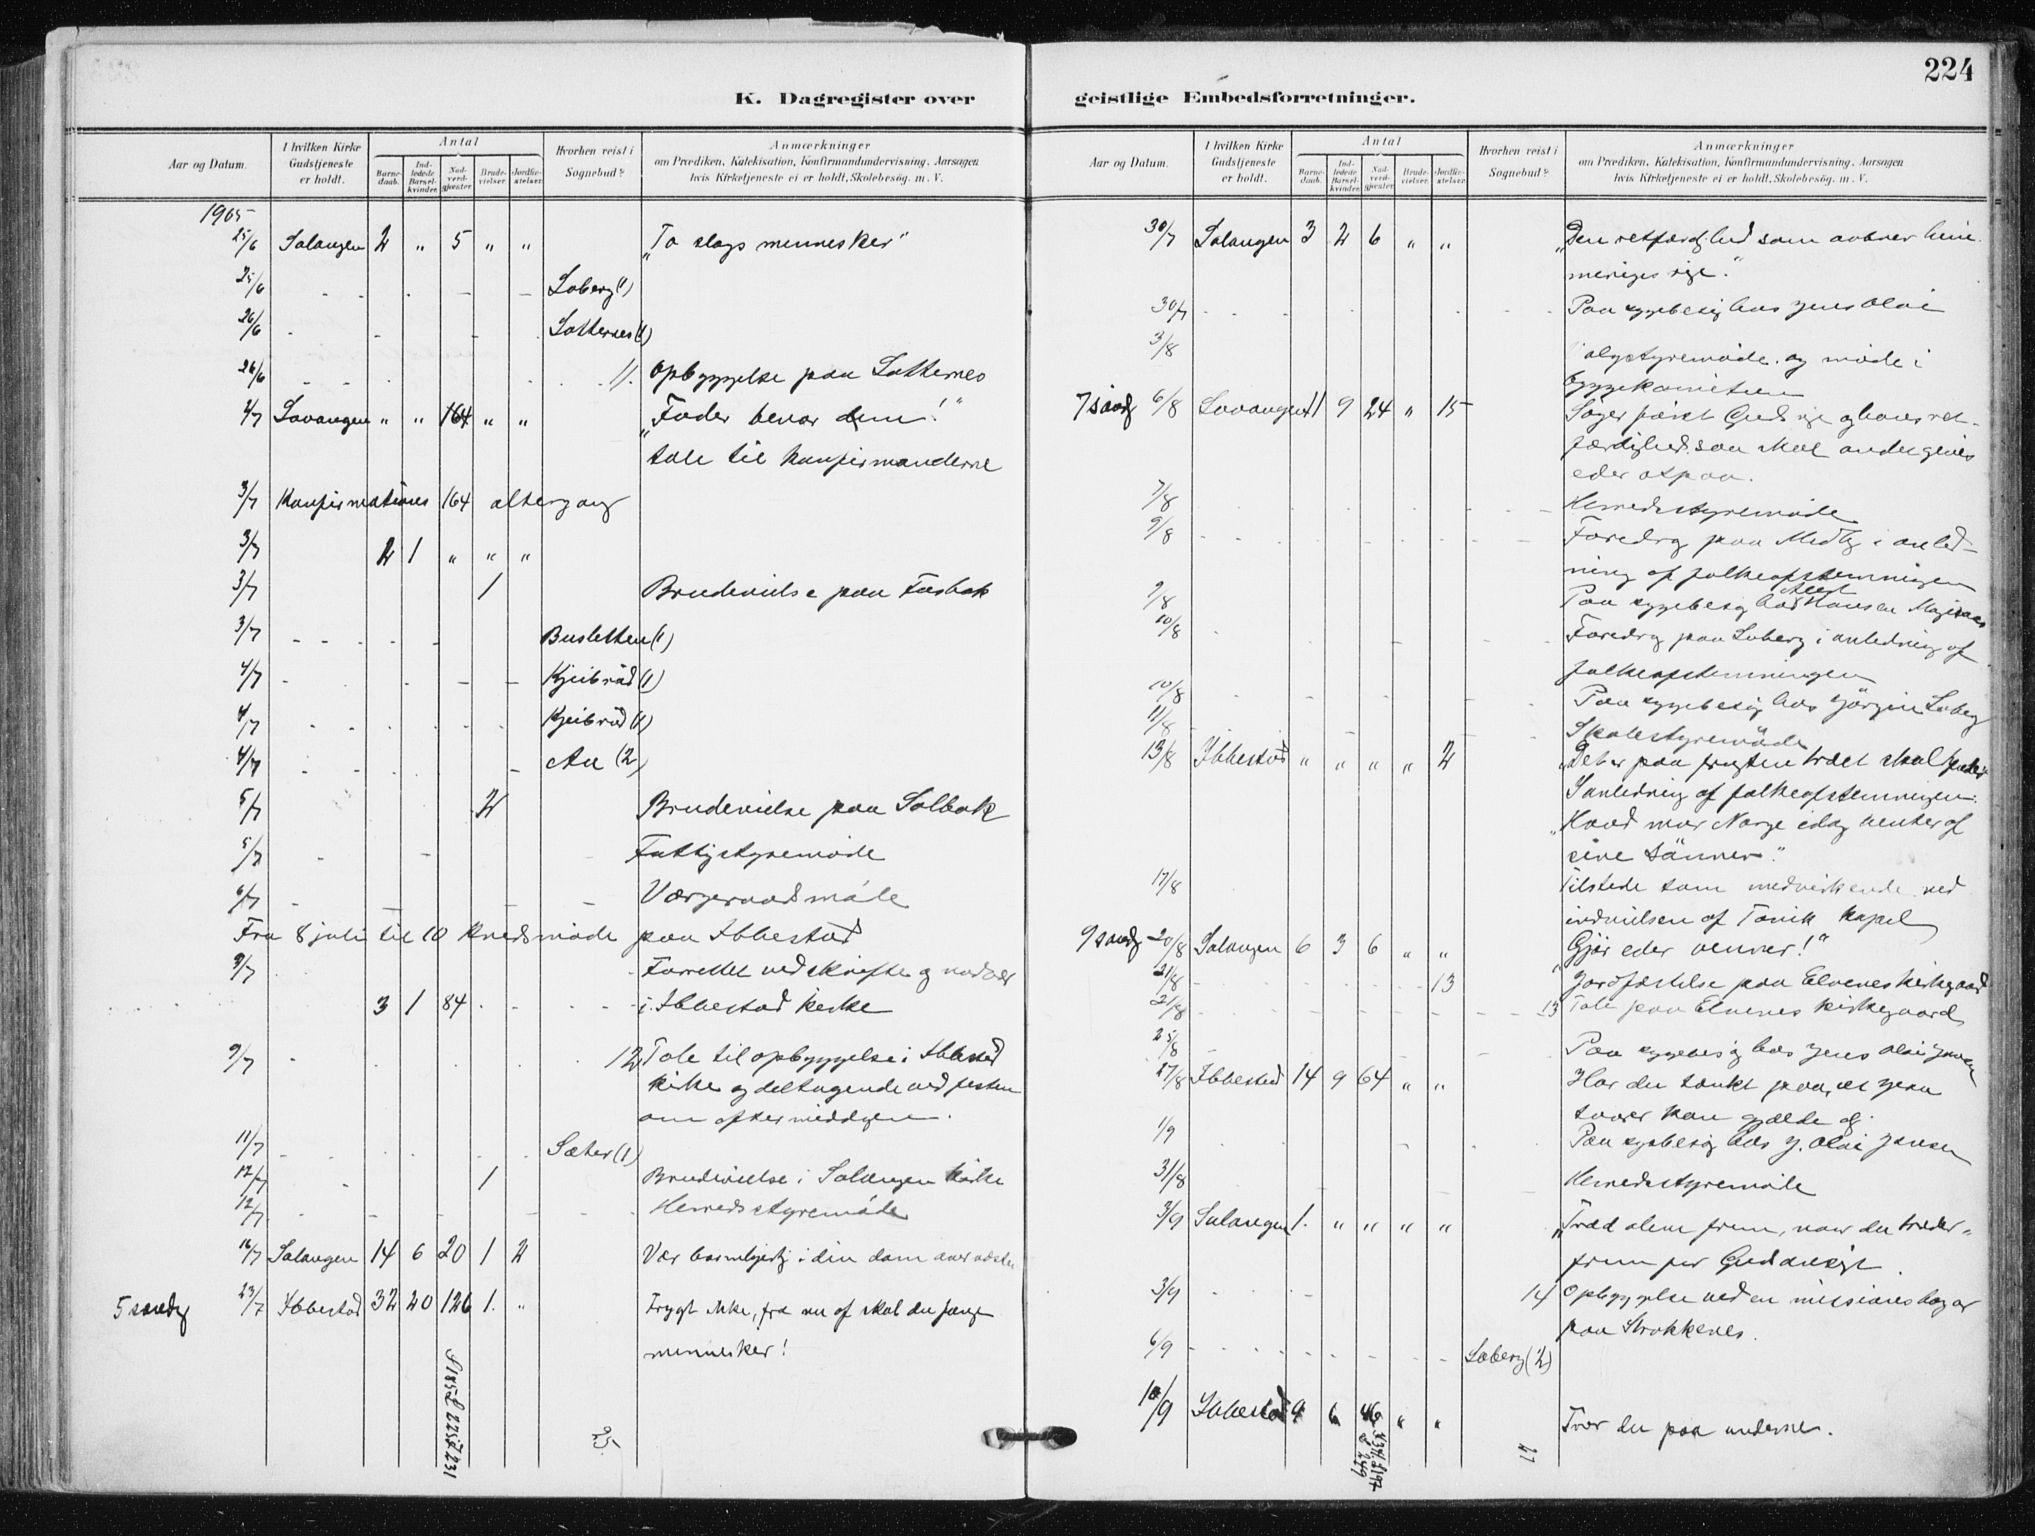 224
K. Dagregister over
geistlige Embedsforretninger.
Aar og Datum.
I hvilken Kirke Gudstjeneste er holdt.
Antal
Barnedaab.
Indledede Barselkvinder.
Nadverdgjæster.
Brudevielser.
Jordfæstelser.
Hvorhen reist i Sognebud?
Anmærkninger
om Prædiken, Katekisation, Konfirmandundervisning, Aarsagen
hvis Kirketjeneste ei er holdt, Skolebesøg. m. V.
1905
25/6 Salangen 2 " 5 " " "To slags mennesker"
25/6 Soberg (1)
26/6 (1)
26/6 11. Opbyggelse paa
2/7 Lavangen " " 164 " " "Fader bevar dem!"
tale til konfirmanderne
3/7 Konfirmationes 164 altergang
3/7 2 1 " " "
3/7 1 Brudevielse paa Fosbak
3/7 Busletten (1)
4/7 (1)
4/7 (1)
4/7 Aa (2)
5/7 2 Brudevielse paa Solbak
5/7 Fattigstyremøde
6/7 Værgeraadsmøte
Fra 8 juli til 10 kredsmøde paa Ibbestad
9/7 Forrettet ved skrifte og nadver
3 1 84 i Ibbestad kirke
9/7 12 Tale til opbyggelse i Ibbestad
kirke og deltagende ved festen
om eftermiddagen.
11/7 Sæter (1)
12/7 1 Brudevielse i Salangen kirke
12/7 Herredsstyremøde
16/7 Salangen 14 6 20 1 2 Vær barmhjertig i din dom over næsten
5 sondg 23/7 Ibbestad 32 20 126 1. " Frygt ikke, fra nu af skal du fange
mennesker!
25
Aar og Datum.
I hvilken Kirke Gudstjeneste er holdt.
Antal
Barnedaab.
Indledede Barselkvinder.
Nadverdgjæster.
Brudevielser.
Jordfæstelser.
Hvorhen reist i Sognebud?
Anmærkninger
om Prædiken, Katekisation, Konfirmandundervisning, Aarsagen
hvis Kirketjeneste ei er holdt, Skolebesøg. m. V.
30/7 Salangen 3 2 6 " " "Den retfærdighed som aabner himmeriges rige."
30/7 Paa sygebesøg hos Jens Olai
3/8 møde i
byggekomiteen
7 søndg 6/8 Lavangen 11 9 24 " 15 Søger først Guds rige og hans retfærdighed, saa skal andet gives
eder atpaa.
7/8 Herredsstyremøde
9/8 Foredrg paa Medby i anledning af folkeafstemningen
9/8 Paa sygebesøg hos Hansen
10/8 Foredrg paa Soberg i anledning af
folkeafstemningen
10/8 Paa sygebesøg hos Jørgine Soberg
11/8 Skolestyremøde
13/8 Ibbestad " " " " 2 "Det er paa frugten træet skal kjendes
I anledning af folkeafstemningen:
"Hvad mor Norge idag venter af
sine sønner."
17/8 Tilstede som medvirkende ved
indvielsen af kapel
9 søndg 20/8 Salangen 6 3 6 " " "Gjør eder venner!"
21/8 13 Jordfæstelse paa Elvenes kirkegaard
21/8 13 Tale paa Elvenes kirkegaard
25/8 Paa sygebesøg hos Jens Olai Jensen
27/8 Ibbestad 14 9 64 " " Har du tænkt paa, at
kan gjælde dig
1/9 Paa sygebesøg hos J. Olai Jensen
31/8 Herredsstyremøde
3/9 Salangen 1. " " " " "Træd alene frem, naar du træder
frem for Guds
3/9 14 Opbyggelse ved en missionsbazar
paa Strokkenes.
6/9 Soberg (2)
10/9 Ibbestad 9 6 46 " " Tror du paa underne.
27